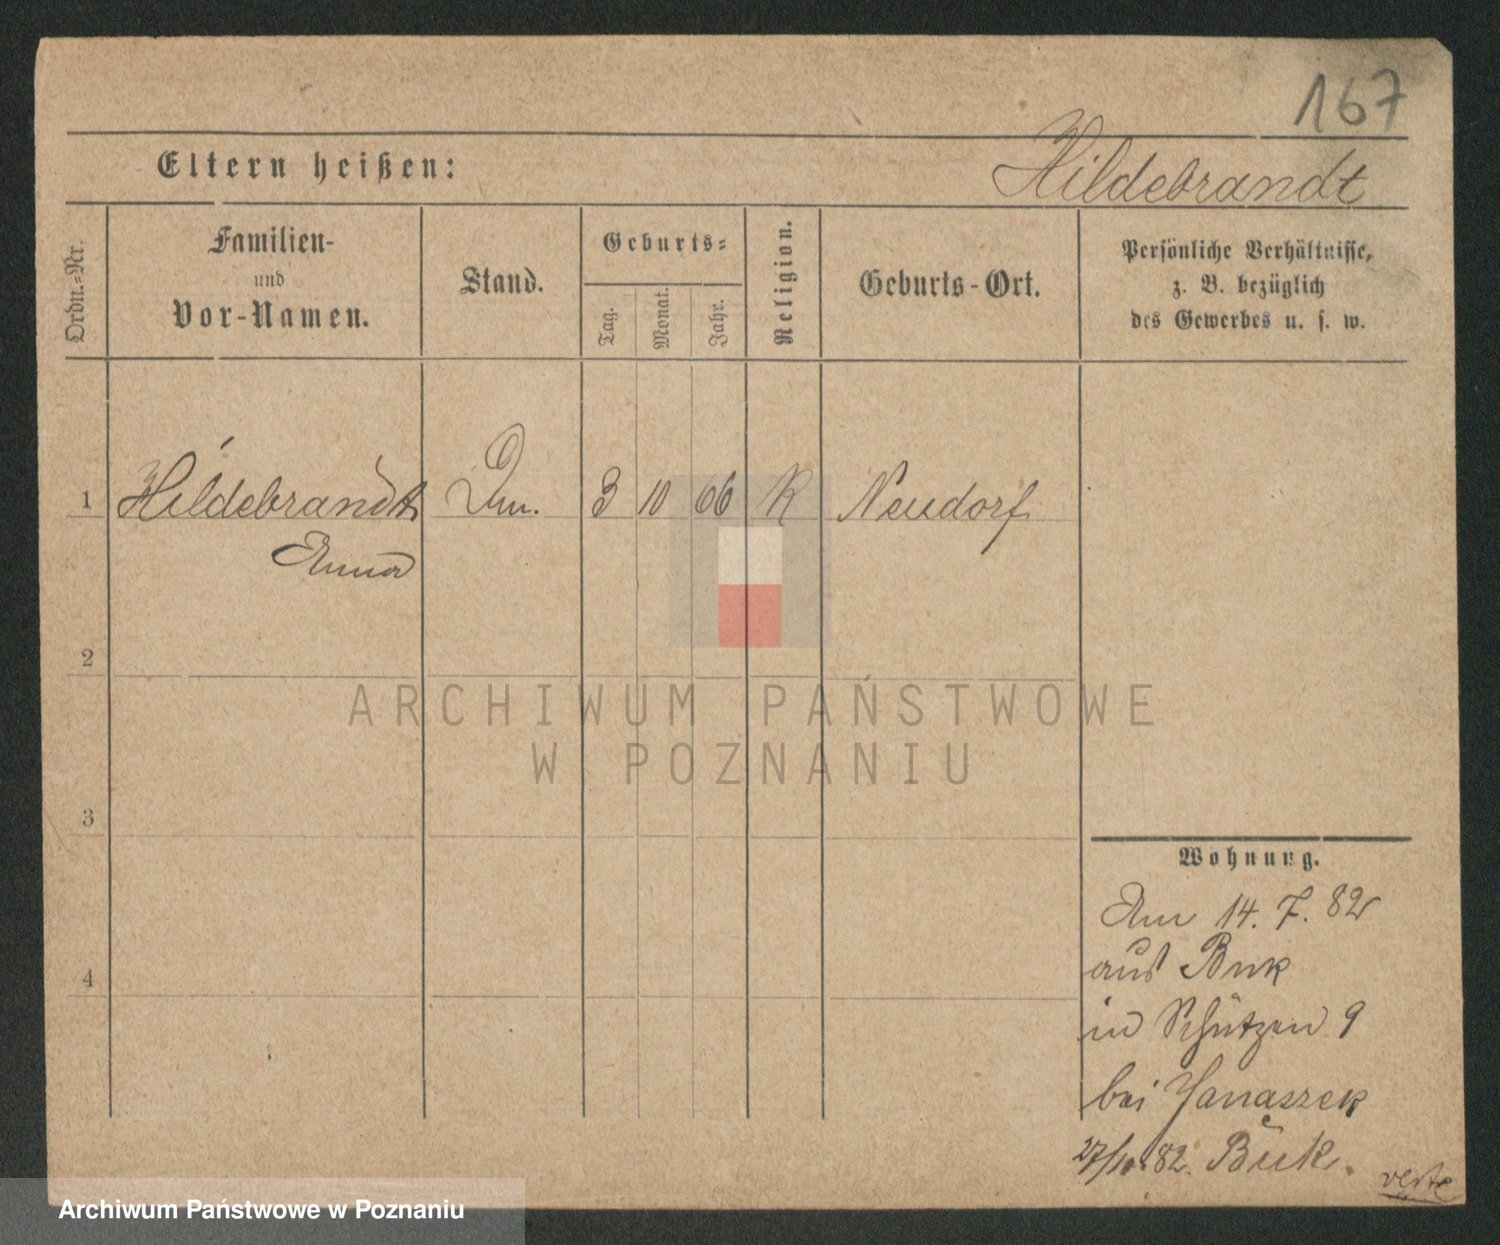 167
Eltern heißen:
Hildebrandt
Ordn.=Nr.
Familien-
und
Vor-Namen.
Stand.
Geburts=
Tag.
Monat.
Jahr.
Religion.
Geburts-Ort.
Persönliche Verhältnisse,
z. B. bezüglich
des Gewerbes u. s. w.
1 Hildebrandt 3 10 06 K Neudorf
Anna
2
3
4
Wohnung.
Am 14. 7. 82
aus Buk
in Schützen 9
bei Janaszek
27/10.82. Buk.
verte
ARCHIWUM PAŃSTWOWE
W POZNANIU
Archiwum Państwowe w Poznaniu